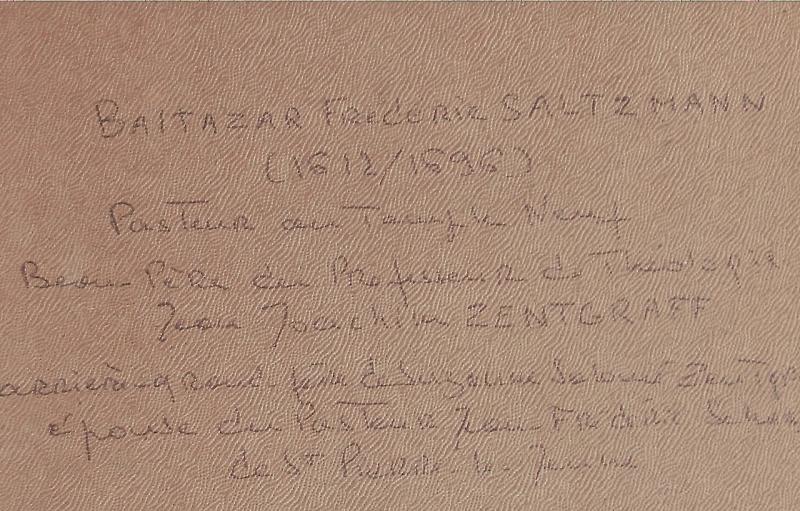 BALTAZAR FRÉDÉRIC SALTZMANN
(1612/1696)
Pasteur au Temple Neuf
Beau-Père du Professeur de Théologie
Jean Joachim ZENTGRAFF
arrière-grand-père de Suzanne Salomé
épouse du Pasteur Jean Frédéric
de St Pierre-le-Jeune